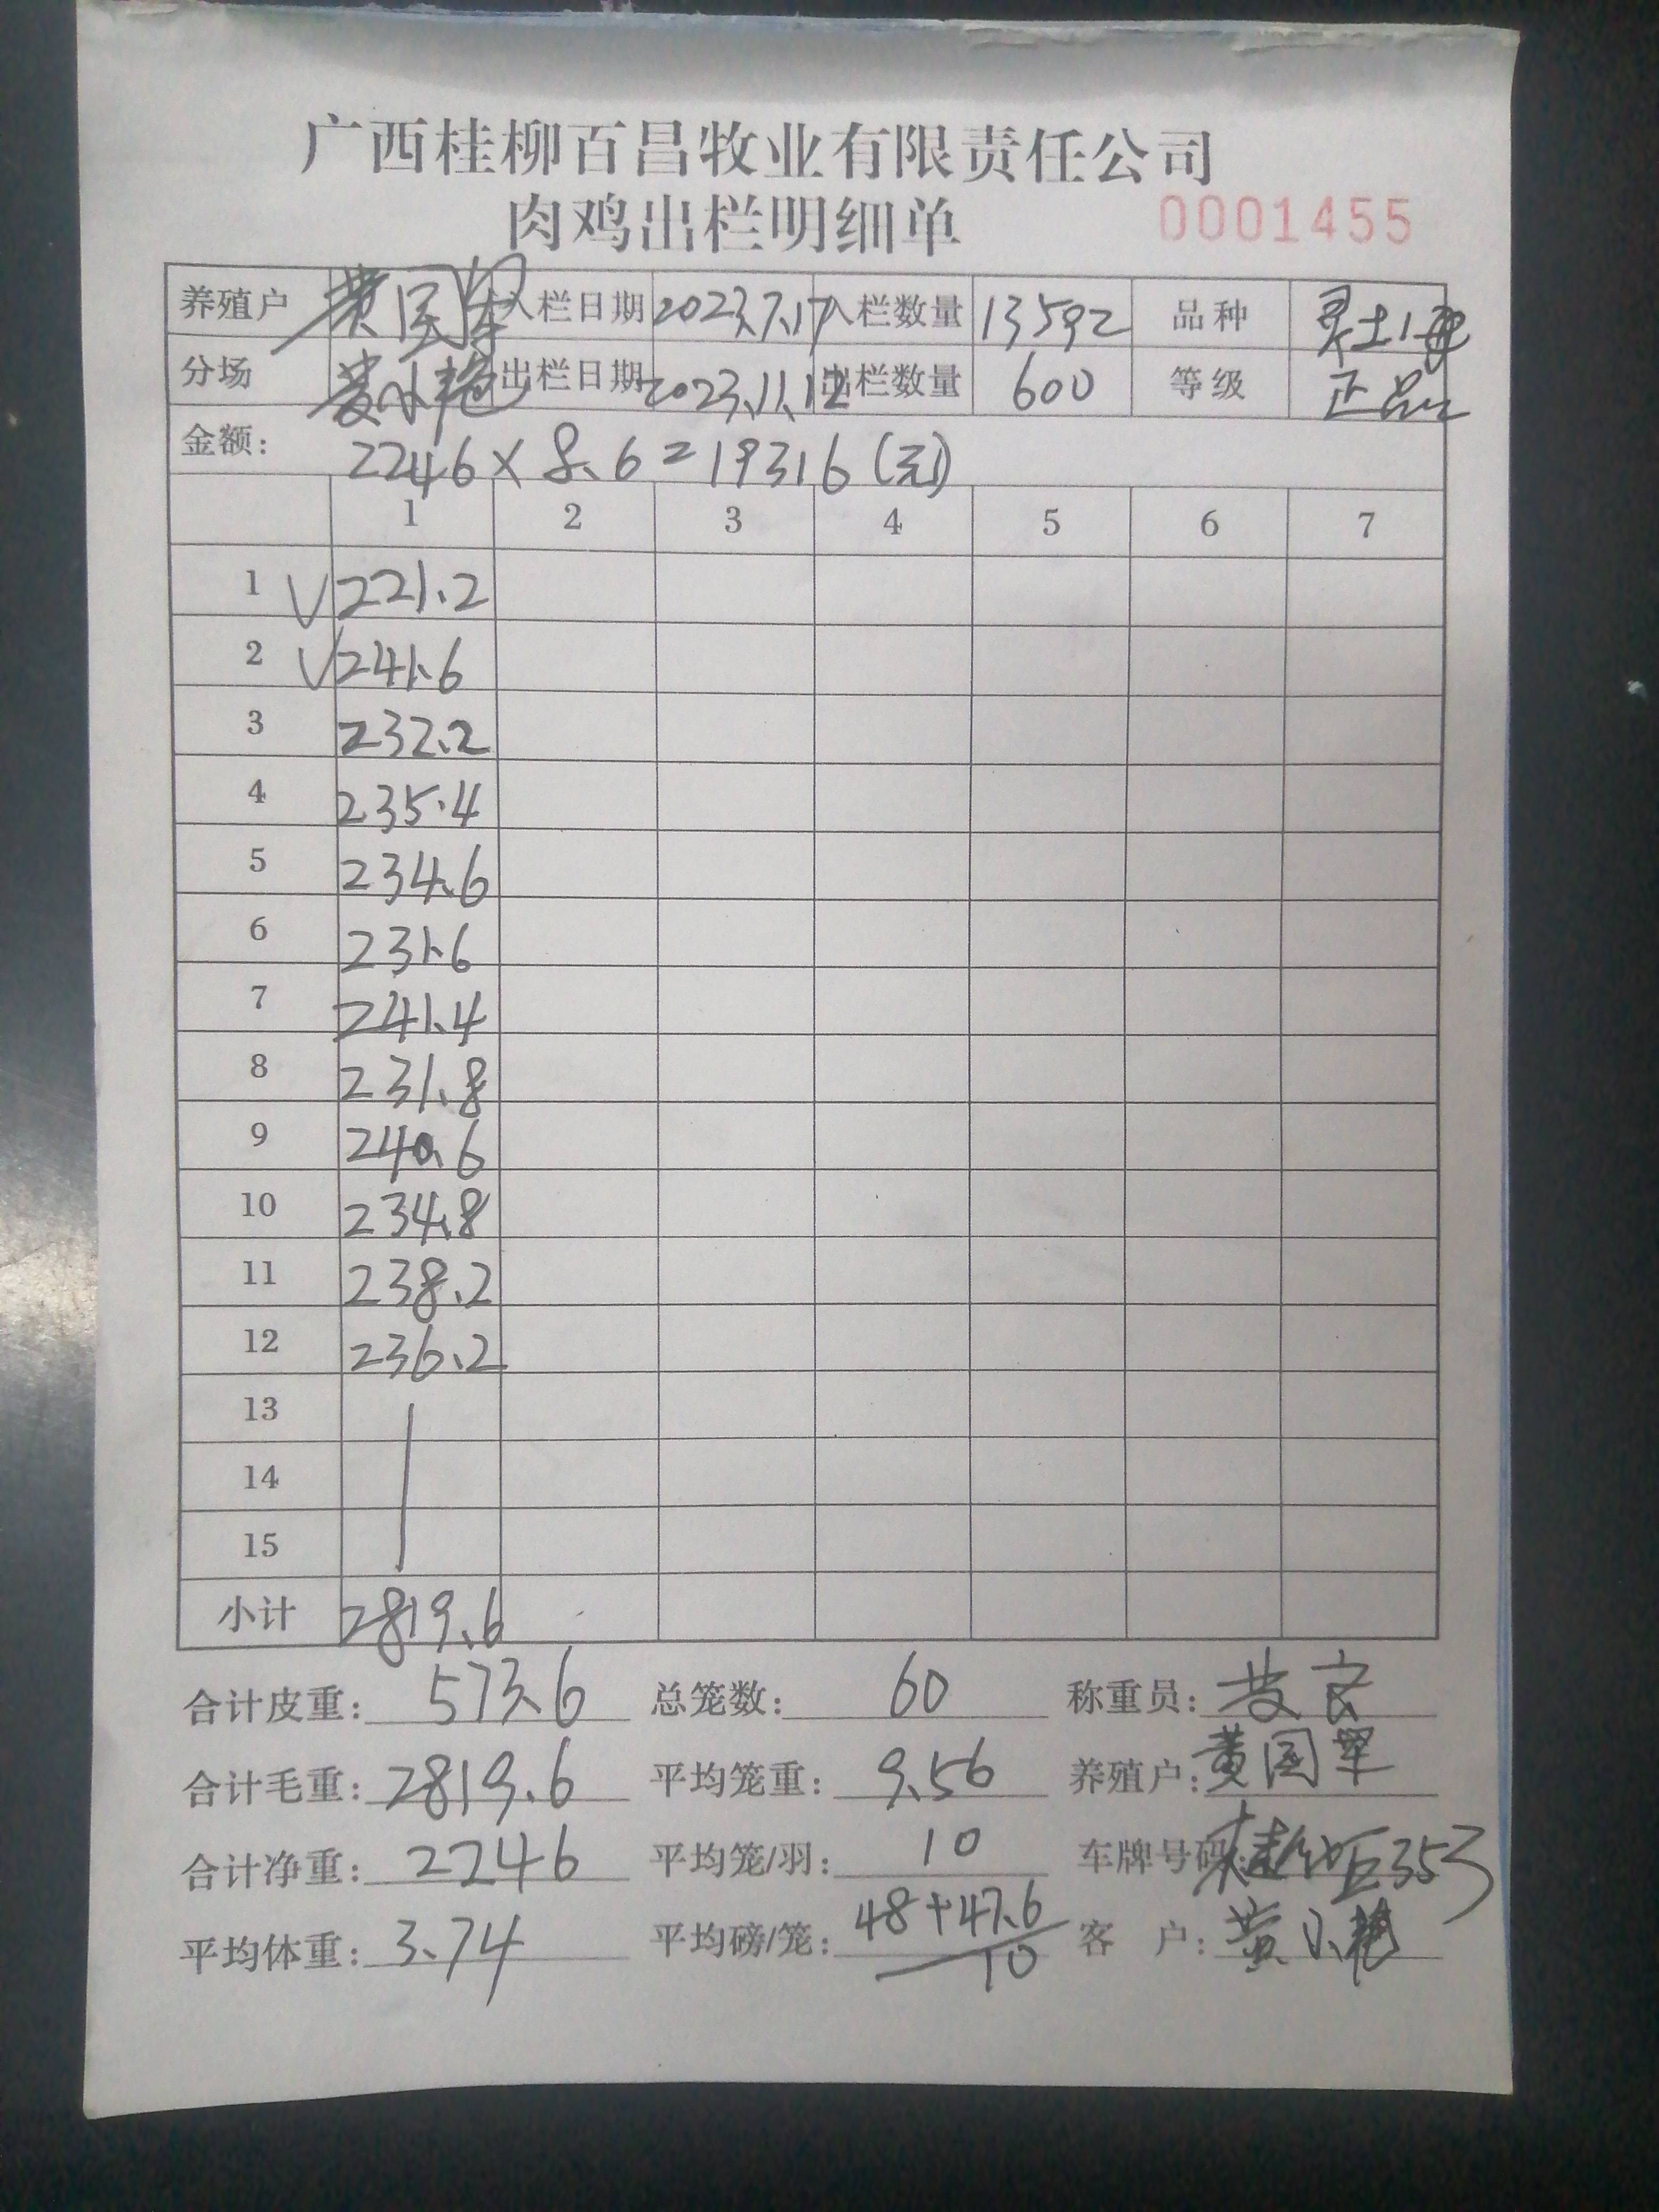 广西桂柳百昌牧业有限责任公司
肉鸡出栏明细单 0001455
养殖户 黄国军 入栏日期 2023.7.17 入栏数量 13592 品种 灵土1母
分场 黄小艳 出栏日期 2023.11.12 出栏数量 600 等级 正品
金额: 2246×8.6=19316(元)
1 2 3 4 5 6 7
1 √221.2
2 √241.6
3 232.2
4 235.4
5 234.6
6 231.6
7 241.4
8 231.8
9 240.6
10 234.8
11 238.2
12 236.2
13
14
15
小计 2819.6
合计皮重: 573.6 总笼数: 60 称重员:
合计毛重: 2819.6 平均笼重: 9.56 养殖户: 黄国军
合计净重: 2246 平均笼/羽: 10 车牌号码: 353
平均体重: 3.74 平均磅/笼: 48+47.6/10 客 户: 黄小艳